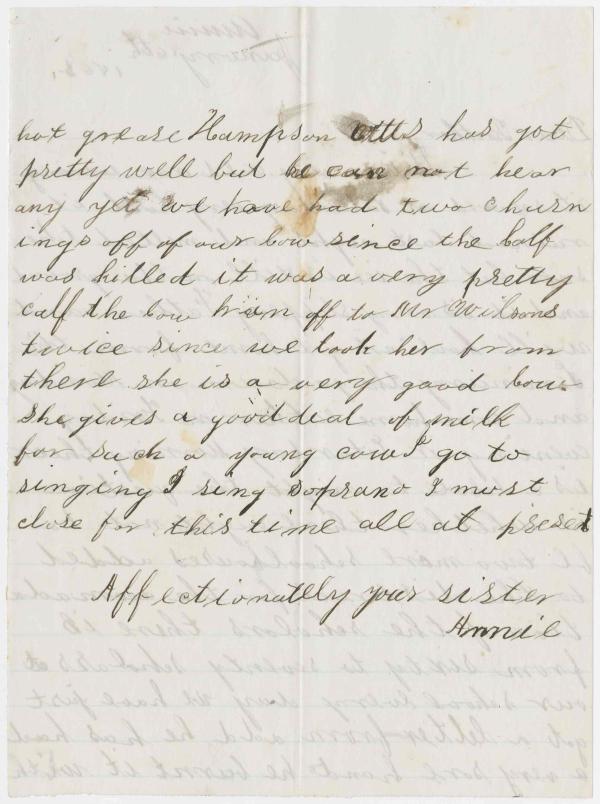 hot grease Hampson has got
pretty well but he can not hear
any yet we have had two churn
ings off of our cow since the calf
was killed it was a very pretty
calf the cow run off to Mr Wilsons
twice since we took her from
there she is a very good cow
she gives a good deal of milk
for such a young cow I go to
singing I sing soprano I must
close for this time all at preset
Affectionatelly your sister
Annie